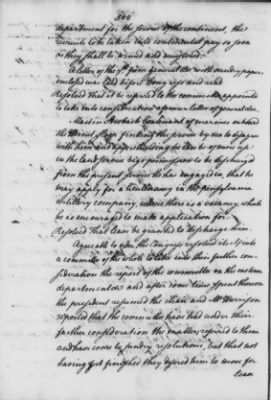 department for the service of the continent, the
recruits to be taken into continental pay so soon
as they shall be armed and mustered.
A letter of the 9th from general with sundry papers
enclosed was laid before Congress and read
Resolved that it be referred to the committee appointed
to take into consideration a former letter of general
Martin lieutenant of marines on board
the finding the service by sea to disagree
with him and apprehending he can be of more use
in the land service begs permission to be discharged
from the present service he has engaged in, that he
may apply for a lieutenancy in the pensylvania
artillery company, where there is a vacancy which
he is encouraged to make application for
Resolved that leave be granted to discharge him.
Agreeable to the Congress resolved itself into
a committee of the whole to take into their farther con-
sideration the report of the committee on the
department and after some time spent thereon
the president resumed the chair and Mr Harrison
reported that the committee have had under their
farther consideration the matter referred to them
and have come to sundry resolutions, but that not
having yet finished they desired him to move for
leave